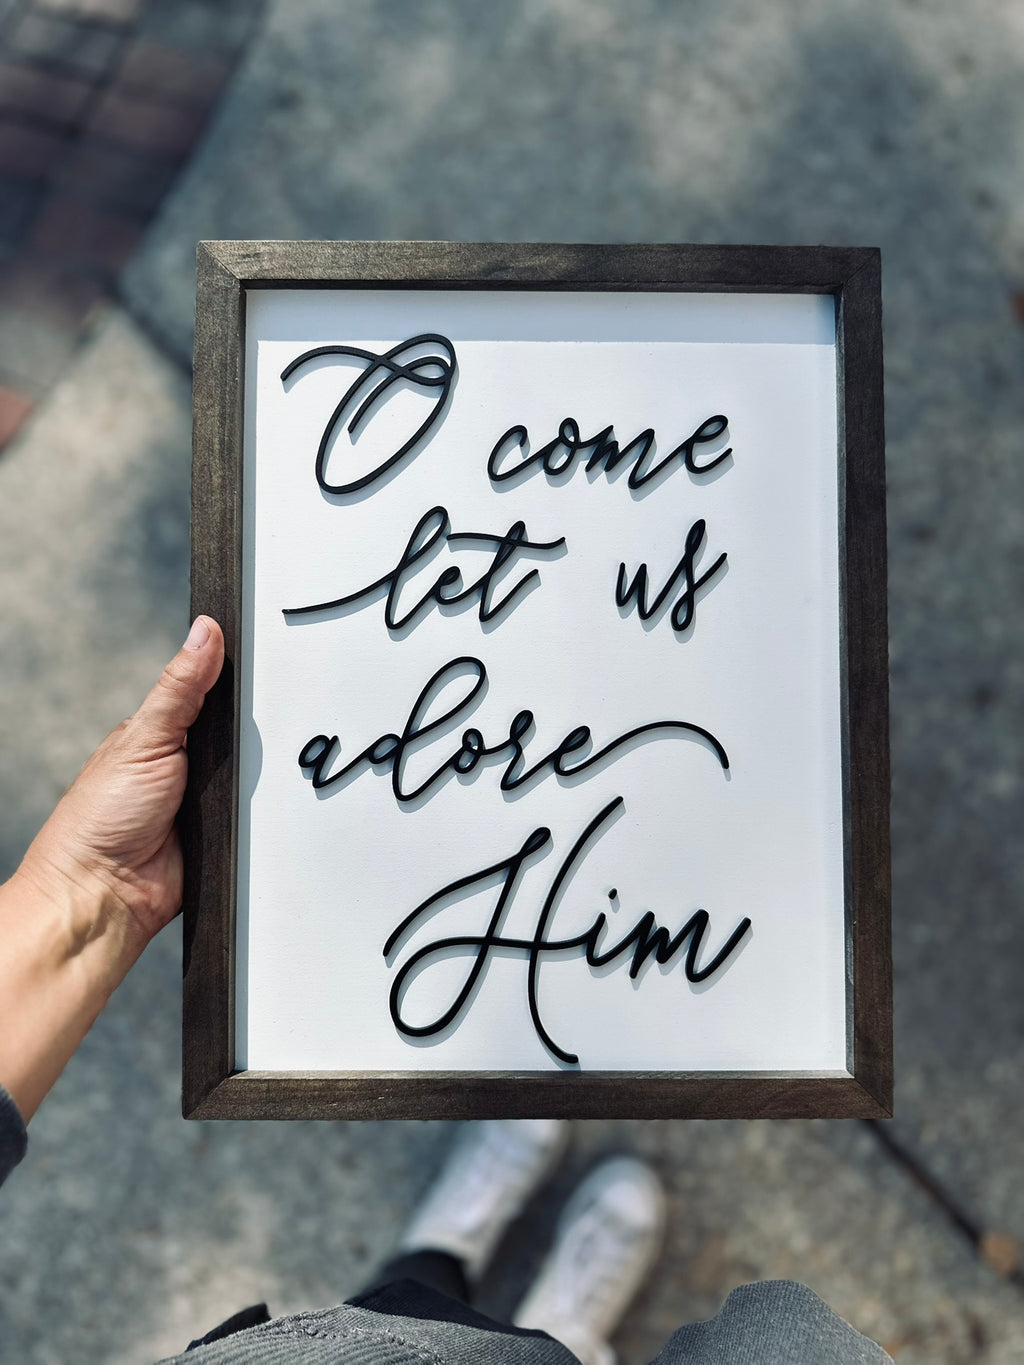 O come
let us
adore
Him